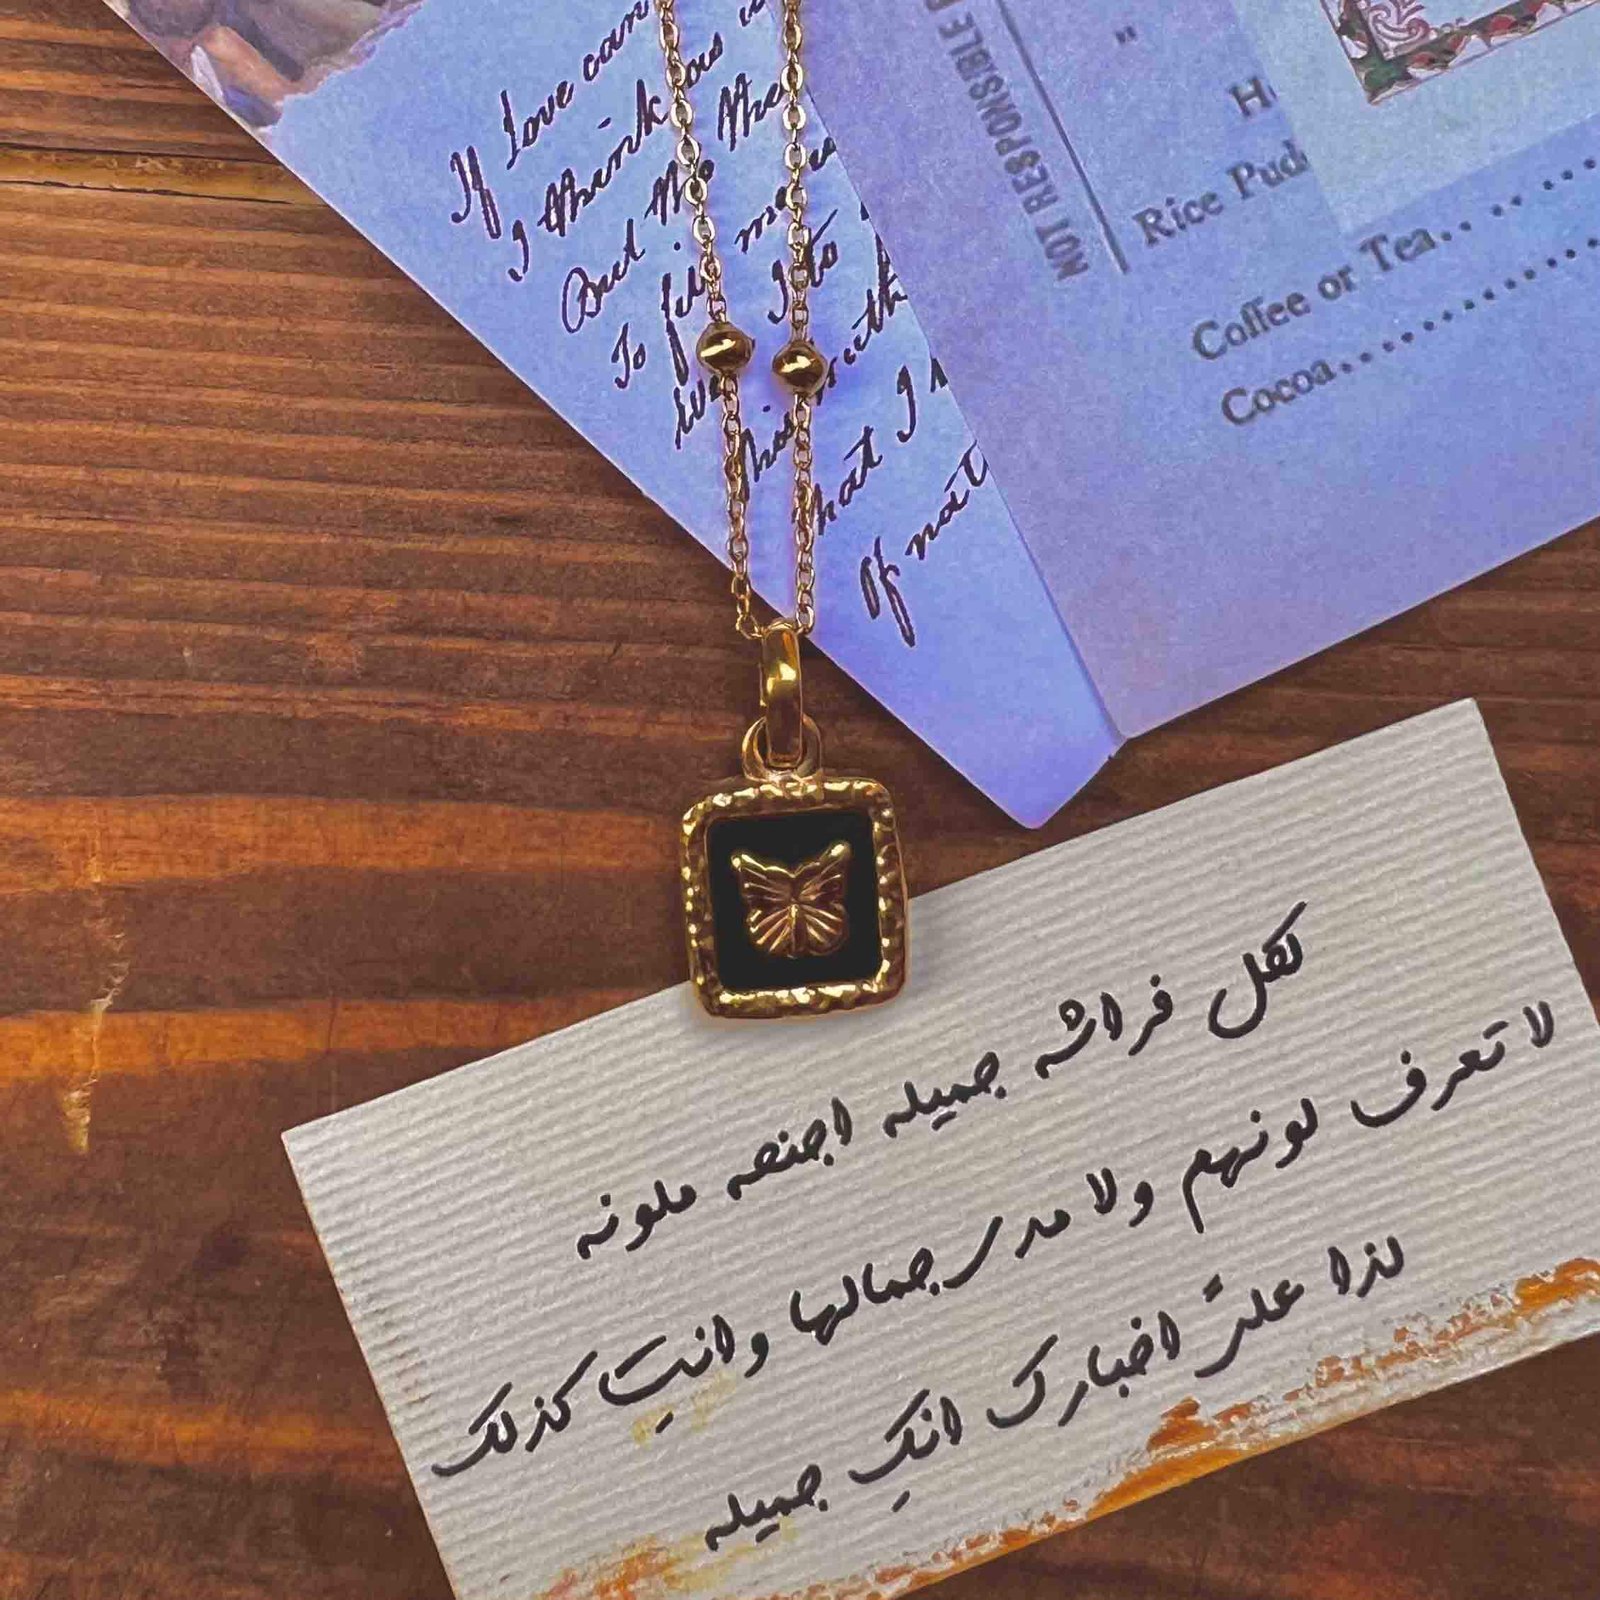 If love can
I think
But the
To
his
that I
If not
NOT RESPONSIBLE
"
Rice Pud
Coffee or Tea..
Cocoa
لكل فراشه جميله اجنحه ملونه
لا تعرف لونهم ولا مدى جمالها وانتِ كذلك
لذا عليَّ اخبارك انكِ جميله